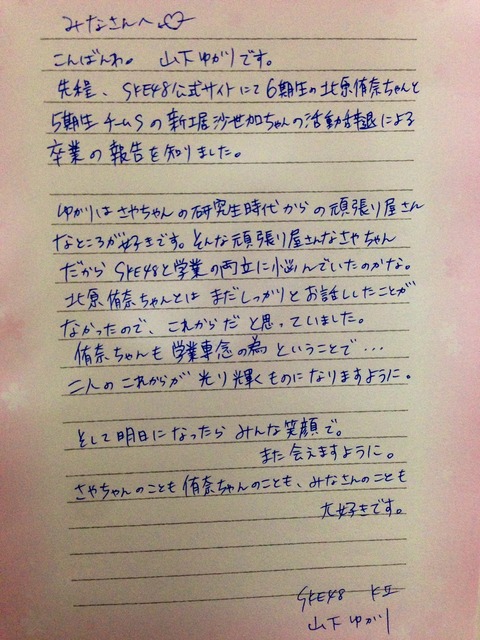 みなさんへ♡
こんばんわ。 山下ゆかりです。
先程、SKE48公式サイトにて6期生の北原侑奈ちゃんと
5期生チームSの新居沙世加ちゃんの活動辞退による
卒業の報告を知りました。
ゆかりはさやちゃんの研究生時代からの頑張り屋さん
なところが好きです。そんな頑張り屋さんなさやちゃん
だからSKE48と学業の両立に小悩んでいたのかな。
北原侑奈ちゃんとは まだしっかりとお話ししたことが
なかったので、これからだと思っていました。
侑奈ちゃんも学業専念の為ということで…
二人のこれからが光り輝くものになりますように。
そして明日になったら みんな笑顔で。
また会えますように。
さやちゃんのことも侑奈ちゃんのことも、みなさんのことも
大好きです。
SKE48 KⅡ
山下ゆかり